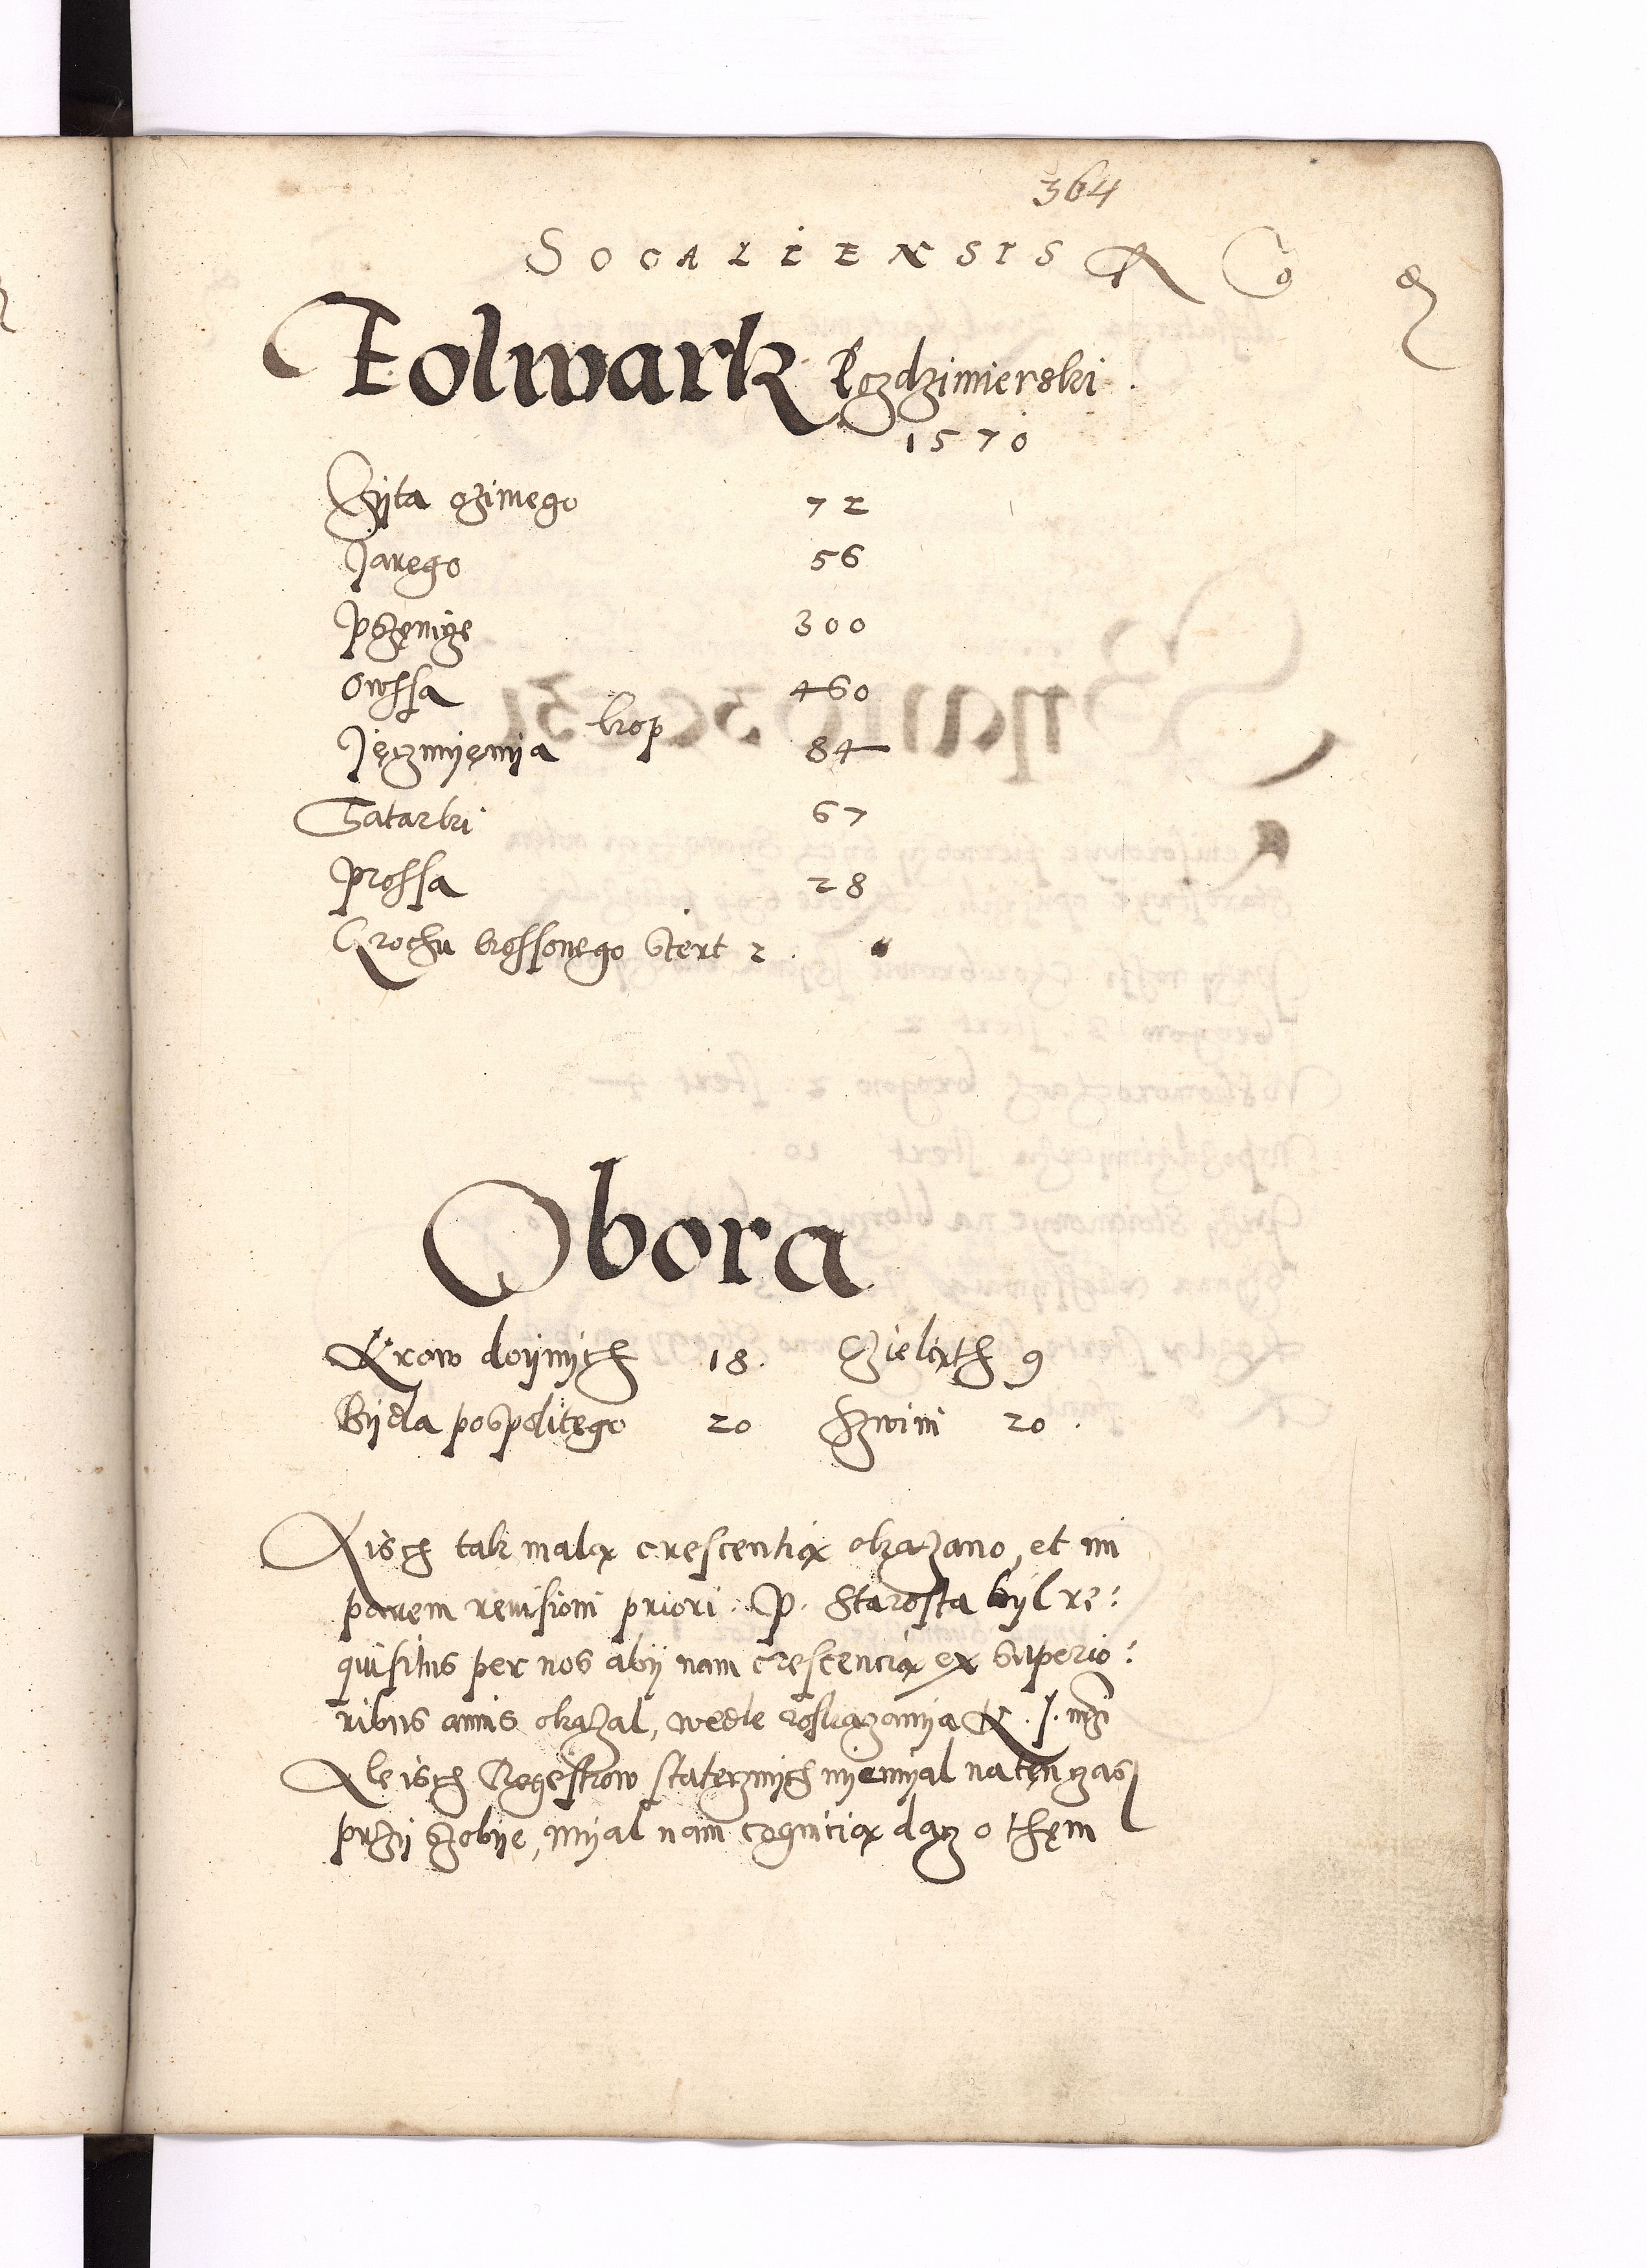 364
SOCALIENSIS
Folwark
1570
Zyta ozimego 72
Jarego 56
Pszenicze 300
Owssa 460
kop
Jęczmyenya 84
Tatarki 67
Prossa 28
Grochu kossonego stert 2.
Obora
Krow doynych 18. Czieliąth 9
Bydła pospolitego 20 Szwini 20.
Aisch tak malą crescentią okazano, et im
parem revisioni priori. P. Starosta byl re:
quisitus per nos aby nam crescencią ex superio:
ribus annis okazal, wedle roskazanya K. J. mći
Ale isch Regestrow statecznych nyemyal na ten czas
przy szobye, myal nam cognicią dacz o them